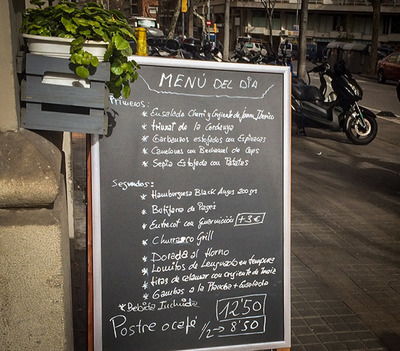 MENÚ DEL DIA
Primeros:
* Ensalada Cherri y Crujiente de Jamon Iberico
* trinxat de la Cerdanya
* Garbanzos estofados con Espinacas
* Canelones con Bechamel de Ceps
* Sepia Estofada con Patatas
Segundos:
* Hamburguesa Black Angus 200 grs
* Botifarra de Pagès
* Entrecot con Guarnición +3€
* Churrasco Grill
* Dorada al Horno
* Lomitos de Lenguado en tempura
* tiras de calamar con crujiente de
* Gambas a la Plancha + Ensalada
* Bebida Incluida
12'50
Postre o café ½→ 8'50